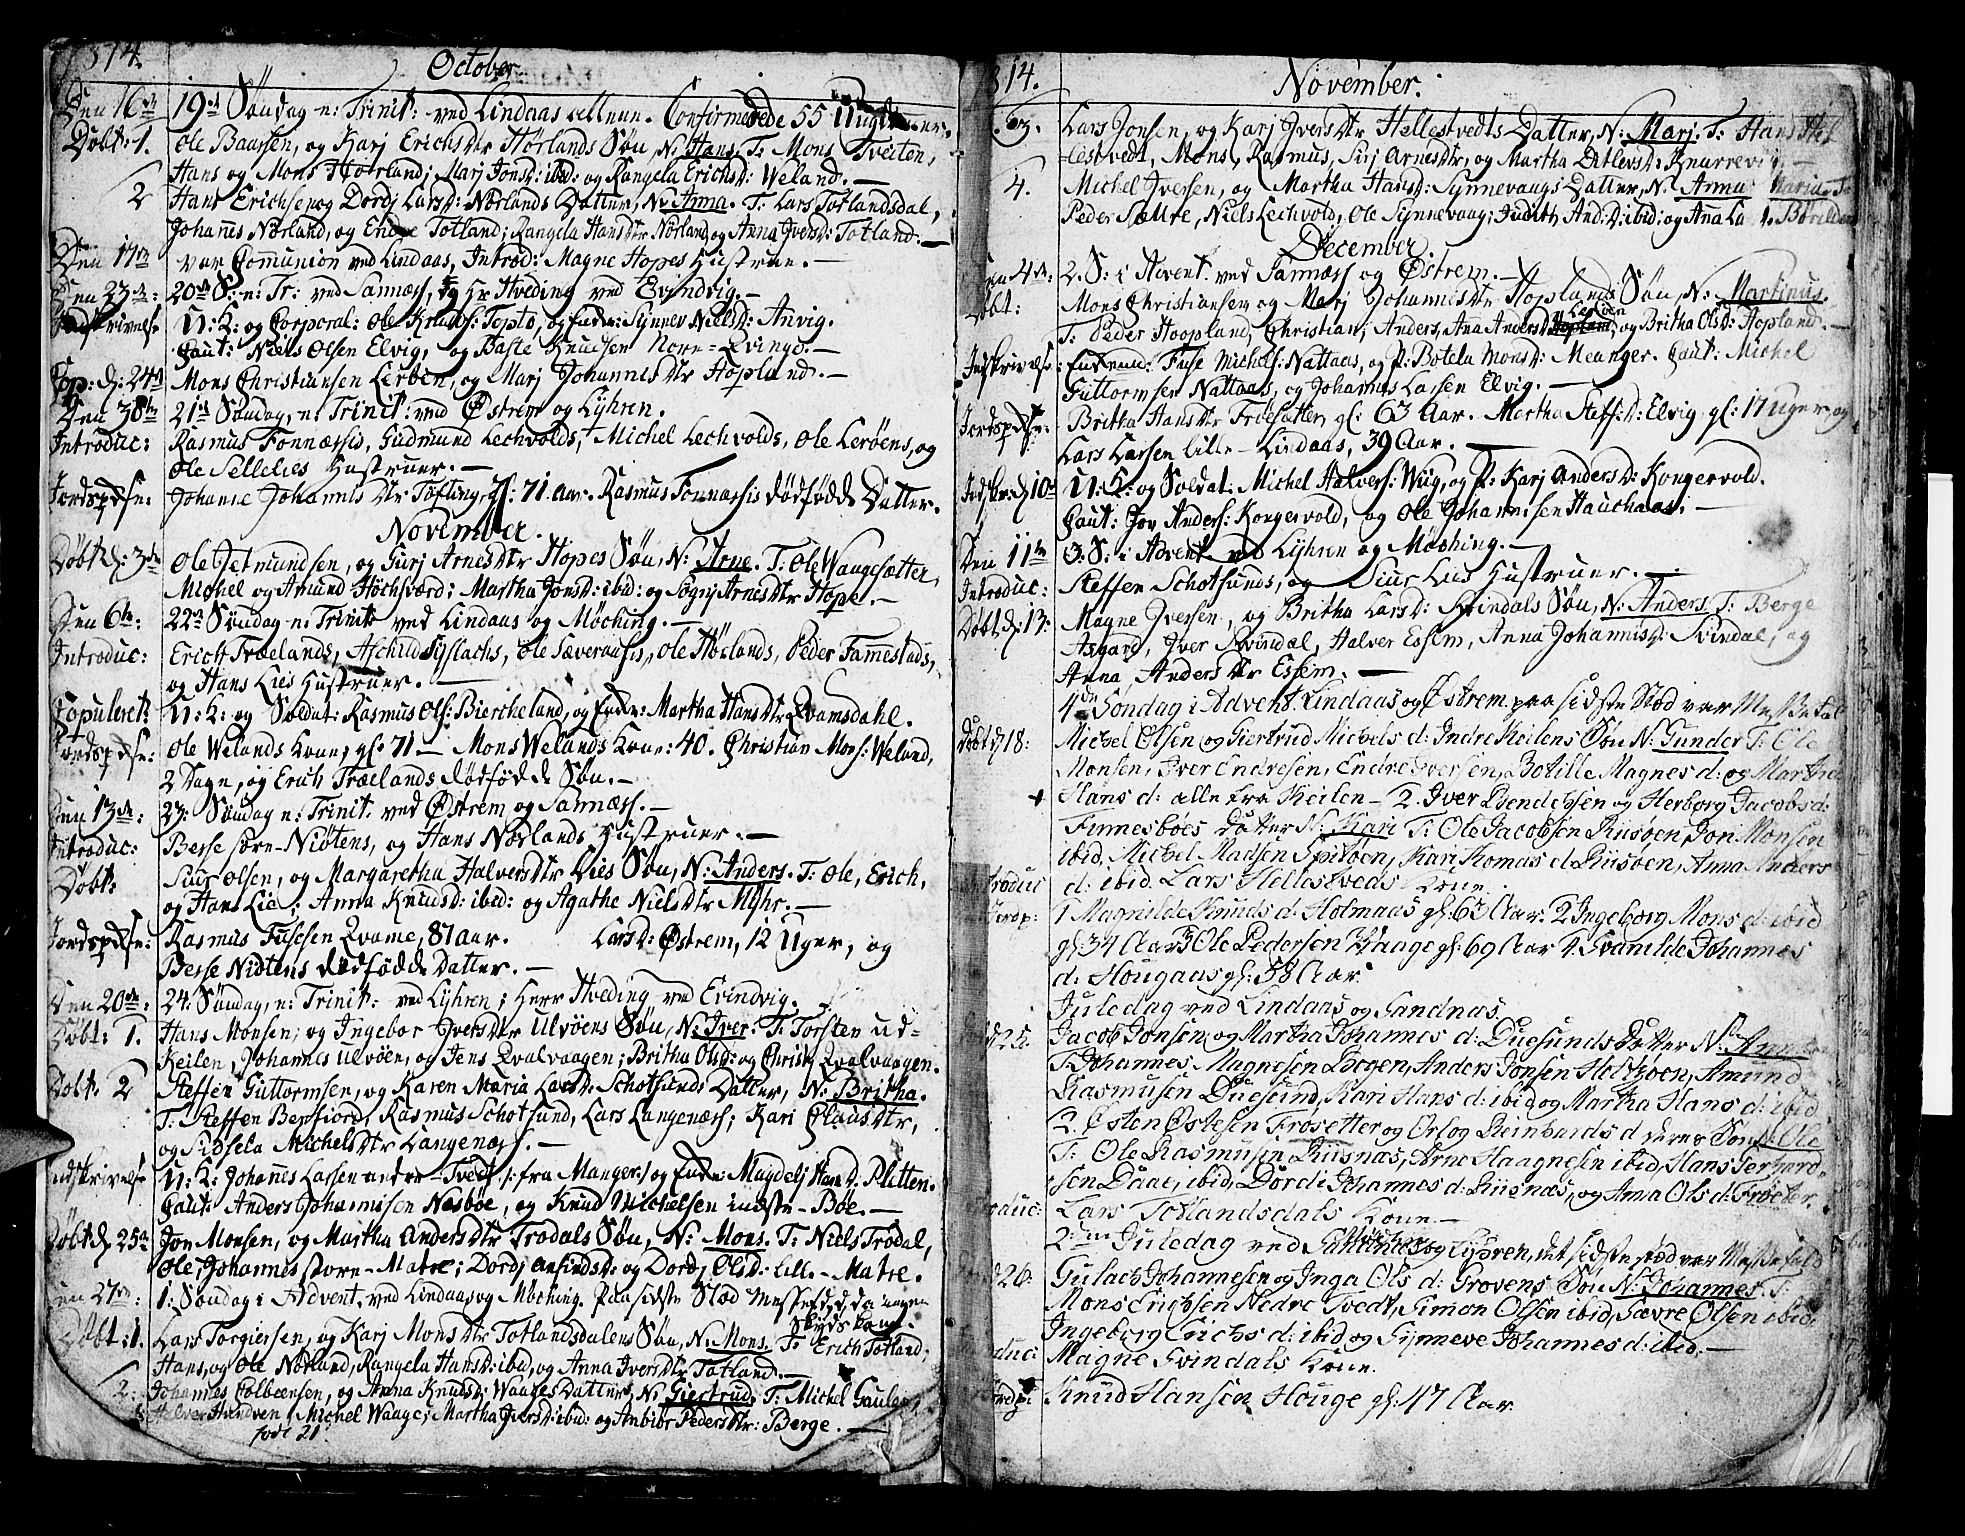 1814. October
Den 16de 19de Søndag n: Trinit: ved Lindaas allene. Confirmerede 55 Ungdommer.
Døbt: 1. Ole Baarsen, og Karj Erichsdtr Hørlands Søn, N: Hans. T: Mons Tveiten,
Hans og Mons Hørland; Marj Jonsd: ibid: og Rangela Erichsd: Weland. —
2 Hans Erichsen og Dordj Larsd: Nørlands Datter, N: Anna. T: Lars Totlandsdal,
Johannis Nørland, og Endre Totland; Rangela Hansdtr Nørland, og Anna Iversd: Totland: —
Den 17de var Comunion ved Lindaas, Introd: Magne Hopes Hustrue. —
Den 23de: 20de S: n: Tr: ved Sannæss, og Hr Hveding ved Evindvig. —
Indskrivelse U: K: og Corporal: Ole Knuds: Topto, og Enke: Synnev Nielsd: Anvig.
Caut: Niels Olsen Elvig, og Baste Knudsen Norn=Qvingo. —
Cop: d: 24de Mons Christiansen Lerøen, og Marj Johannisdtr Hopland. —
Den 30te 21de Søndag, n: Trinit: ved Østrem og Lÿhren.
Introduc: Rasmus Fonnæssis, Gudmund Lechvolds, Michel Lechvolds, Ole Lerøens, og
Ole Sellelies Hustruer. —
Jordspdse: Johanne Johannisdtr Tøfting, gl: 71 aar. Rasmus Fonnæssis dødfødde Datter.
November.
Døbt d: 3de Ole Jetmundsen, og Gurj Arnesdtr Hopes Søn, N: Arne. T: Ole Waagesætter,
Michel og Amund Høchsværd; Martha Jonsd: ibid: og Sognj Arnesdtr Hope. —
Den 6te: 22de Søndag n: Trinit: ved Lindaas og Møching. —
Introduc: Erich Trælands, Aschild Sylachs, Ole Sæveraassis, Ole Hørlands, Peder Fammestads,
og Hans Lies Hustruer. —
Copuleret: U: K: og Soldat: Rasmus Ols: Biercheland, og Enke: Martha Hansdtr Qvamsdahl.
Jordspdse: Ole Welands Kone, gl: 71 — Mons Welands Kone: 40. Christian Mons: Weland,
2 Dage, og Erich Trælands dødfødde Søn. —
Den 13de: 23: Søndag n: Trinit: ved Østrem og Sannæss. —
Introduc: Berse Store-Niøtens, og Hans Nørlands Hustruer. —
Døbt: Siur Olsen, og Margaretha Halversdtr Lies Søn, N: Anders. T: Ole, Erich,
og Hans Lie; Anna Knudsd: ibid: og Agathe Nielsdtr Mÿhr. —
Jordspdse: Rasmus Fusesen Qvame, 87 aar. Larsd: Østrem, 12 Uger, og
Berse Niøtens dødfødde Datter. —
Den 20de: 24. Søndag, n: Trinit: ved Lÿhren; Herr Hveding ved Evindvig.
Døbt: 1. Hans Monsen, og Ingebor Iversdtr Ulvøens Søn, N: Iver. T: Torsten ud=
Keilen, Johannes Ulvøen, og Jens Qvalvaagen; Britha Olsd: og Christi Qvalvaagen.
Døbt: 2 Steffen Guttormsen, og Karen Maria Larsd: Schotsunds Datter, N: Britha.
T: Steffen Berfiord, Rasmus Schotsund, Lars Langenæss; Kari Claasdtr,
og Sidsela Michelsdtr Langenæss. —
Indskrivelse U: K: Johannis Larsen ander-Tveet (: fra Manger:) og Enke: Magdelj Hansd: Pletten.
Caut: Anders Johannisen Nesbøe, og Knud Michelsen indste-Bøe. —
Døbt d: 25de Jon Monsen, og Martha Andersdtr Trodals Søn, N: Mons. T: Niels Trodal,
Ole, Johannes store-Matre; Dordj Ansindsd: og Dordj Olsd: lille-Matre.
Den 27de: 1: Søndag i Advent, ved Lindaas og Møching. Paa sidste Stæd Messefald, da ingen
Skyds kom.
Døbt: 1. Lars Torgiersen, og Karj Monsdtr Totlandsdalens Søn, N: Mons. T: Erich Totland,
Hans, og Ole Nørland, Rangela Hansd: ibid, og Anna Iversdtr Totland. —
2: Johannes Colbeensen, og Anna Knudsd: Waages Datter, N: Giertrud. T: Michel Gaulen,
Halver Hundven, Michel Waage; Martha Iversd: ibid: og Anbiør Pedersdtr: Berge. —
født 21
1814. November.
3. Lars Jonsen, og Karj Iversdtr Hellestvedts Datter, N: Marj. T: Hans Hel
=lestvedt, Mons, Rasmus, Siri Arnesdtr, og Martha Detlevsd: Knarrevig, —
4. Michel Iversen, og Martha Hansd: Synnevaags Datter, N: Anna Maria. T:
Peder Sætre, Niels Lechvold, Ole Synnevaag; Judith And:d: ibid: og Ana
December
Den 4de: 2. S: i Advent: ved Sannæss og Østrem. —
Døbt: Mons Christiansen og Marj Johannisdtr Hoplands Søn, N: Martinus.
Lerøen
T: Peder Hoopland, Christian, Anders, Ana Andersd: Hopland, og Britha Olsd: Hopland. —
Indskrivelse: Enkem: Fuse Michels: Nattaas, og P: Botela Monsd: Meanger. Caut: Michel
Guttormsen Nattaas, og Johannes Larsen Elvig. —
Jordspdse: Britha Hansdtr Frøesætter, gl: 63 Aar. Martha Steff:d: Elvig, gl: 17 Uger, og
Lars Larsen lille-Lindaas, 39 Aar. —
Indskr: d: 10de U: K: og Soldat: Michel Halvers: Wiig, og P: Karj Andersd: Kongervold.
Caut: Jon Anders: Kongervold, og Ole Johannisen Hauchaas. —
Den 11te 3. S: i Advent ved Lÿhren og Møching. —
Introduc: Steffen Schotsunds, og Siur Lies Hustruer. —
Døbt d: 13: Magne Iversen, og Britha Larsd: Svindals Søn, N: Anders. T: Berge
Asgard, Iver Svindal, Halver Essem, Anna Johannisd: Svindal, og
Anna Andersdtr Essem. —
4de Søndag i Advent. Lindaas og Østrem. paa sidste Stæd var Messefald
Døbt d 18: Michel Olsen og Giertrud Michels d: Indre Keilens Søn N: Gunder T: Ole
Monsen, Iver Endresen, Endre Iversen, Botille Magnes d: og Martha
Hans d: alle fra Keilen — 2. Iver Bendixsen og Herborg Jacobs d:
Finnesbøes datter N: Kari T: Ole Jacobsen Riisøen, Jon Monsen
ibid, Michel Madsen Spitøen, Kari Tomas d: Riisøen, Anna Anders
Introduc d: ibid. Lars Hellestveds Kone.
Jordp: 1 Magnilde Knuds d: Holmaas gl: 63 Aar. 2 Ingeborg Mons d: ibid
gl: 34 Aar 3 Ole Pedersen Waage gl: 69 Aar 4. Svanilde Johannes
d: Hougaas gl: 58 Aar.
Juledag ved Lindaas og Sandnas.
d 25. Jacob Jonsen og Martha Johannes d: Duesunds Datter N: Anna
T: Johannes Magnesen Skogen, Anders Jonsen Helkøen, Amund
Rasmusen Duesund, Kari Hans d: ibid og Martha Hans d: ibid
2. Østen Østesen Frøsetter og Orlog Reinhards d deres Søn N: Ole
T: Ole Rasmusen Riisnæs, Arne Haagnesen ibid, Hans Gerhard=
sen Daae, ibid, Dordi Johannes d: Riisnæs, og Anna Ols d: Frøseter.
Introduc: Lars Totlandsdals Kone —
2den Juledag ved og Lyhren, det sidste stæd var Messefald
d 26: Gulach Johannesen og Inga Ols d: Grovens Søn N: Johannes T:
Mons Erichsen Nedre Tvedt, Simon Olsen ibid, Sævre Olsen ibid,
Ingeborg Erichs d: ibid og Synneve Johannes d: ibid. —
Introduc: Magne Svindals Kone.
Jordp: Knud Hansen Houge gl: 47 Aar.